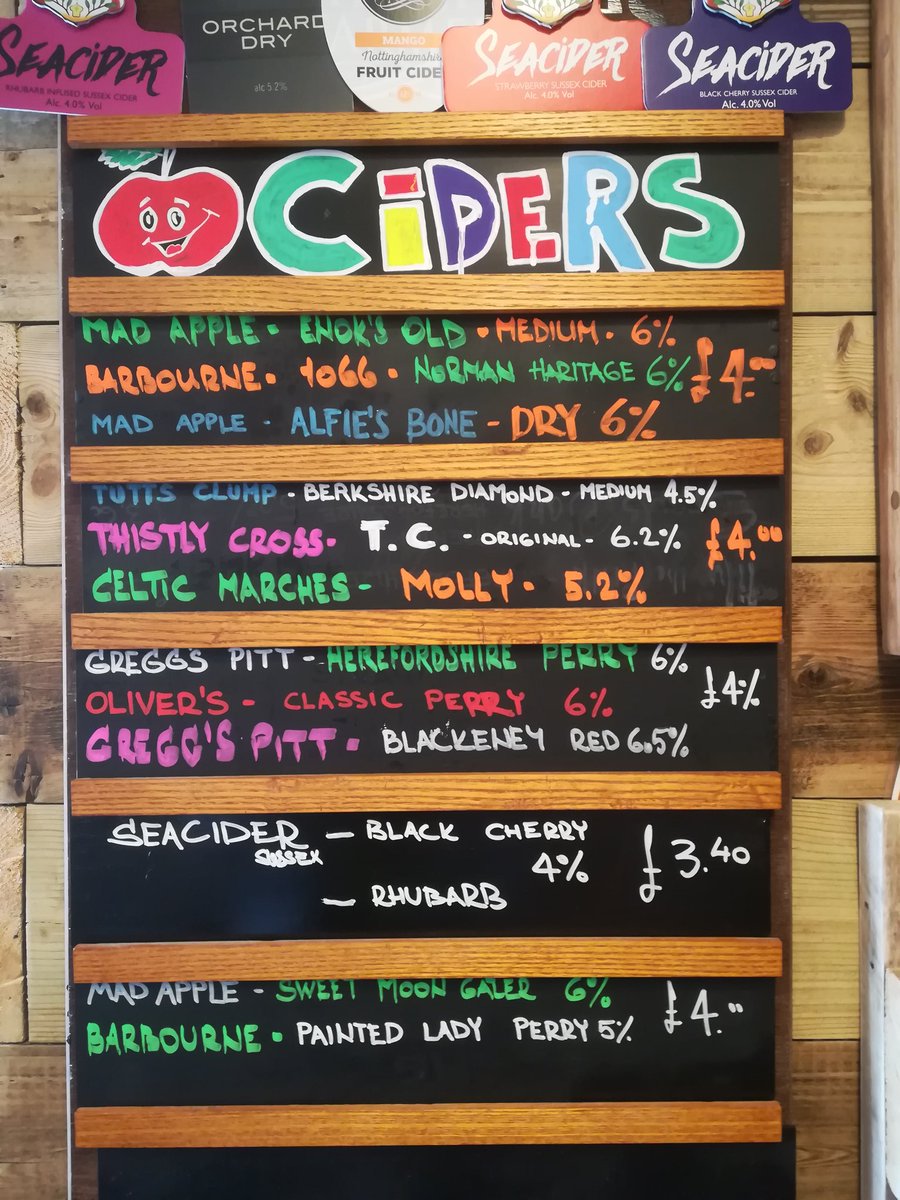 SEACiDER
RHUBARB INFUSED SUSSEX CIDER
Alc. 4.0% Vol
ORCHARD
DRY
alc 5.2%
MANGO
Nottinghamshire
FRUIT CIDE
SEACiDER
STRAWBERRY SUSSEX CIDER
Alc. 4.0% Vol
SEACiDER
BLACK CHERRY SUSSEX CIDER
Alc. 4.0% Vol
CiDERS
MAD APPLE - ENOK'S OLD - MEDIUM - 6%
BARBOURNE - 1066 - NORMAN HARITAGE 6% £4.00
MAD APPLE - ALFIE'S BONE - DRY 6%
TUTTS CLUMP - BERKSHIRE DIAMOND - MEDIUM 4.5%
THISTLY CROSS - T.C. - ORIGINAL - 6.2% £4.00
CELTIC MARCHES - MOLLY - 5.2%
GREGGS PITT - HEREFORDSHIRE PERRY 6%
OLIVER'S - CLASSIC PERRY 6% £4%
GREGG'S PITT - BLACKENEY RED 6.5%
SEACIDER - BLACK CHERRY
SUSSEX 4% £3.40
- RHUBARB
MAD APPLE - SWEET MOON GAZER 6%
BARBOURNE - PAINTED LADY PERRY 5% £4.00